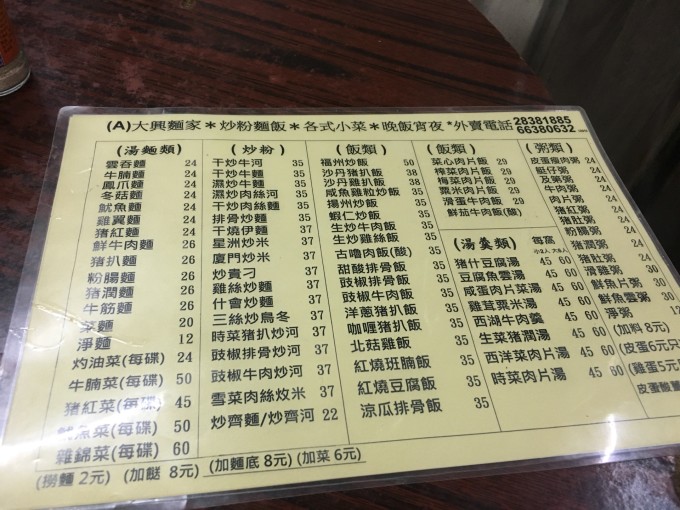 (A)大興麵家＊炒粉麵飯＊各式小菜＊晚飯宵夜*外賣電話 28381885
66380632
(湯麵類)
雲吞麵 24
牛腩麵 24
鳳爪麵 24
冬菇麵 24
魷魚麵 24
雞翼麵 24
豬紅麵 24
鮮牛肉麵 26
豬扒麵 26
粉腸麵 26
豬潤麵 26
牛筋麵 26
菜麵 20
淨麵 12
灼油菜(每碟) 24
牛腩菜(每碟) 50
豬紅菜(每碟) 45
魷魚菜(每碟) 50
雜錦菜(每碟) 60
(炒粉)
干炒牛河 35
干炒牛麵 35
濕炒牛河 35
濕炒肉絲河 35
干炒肉絲麵 35
排骨炒麵 35
干燒伊麵 35
星洲炒米 37
廈門炒米 37
炒貴刁 37
雞絲炒麵 37
什會炒麵 37
三絲炒烏冬 37
時菜豬扒炒河 37
豉椒排骨炒河 37
豉椒牛肉炒河 37
雪菜肉絲炆米 37
炒齋麵/炒齋河 22
(飯類)
福州炒飯 50
沙丹豬扒飯 38
沙丹雞扒飯 38
咸魚雞粒炒飯 38
揚州炒飯 35
蝦仁炒飯 35
生炒牛肉飯 35
生炒雞絲飯 35
古嚕肉飯(酸) 35
甜酸排骨飯 35
豉椒排骨飯 35
豉椒牛肉飯 35
洋蔥豬扒飯 35
咖喱豬扒飯 35
北菇雞飯 35
紅燒班腩飯 35
紅燒豆腐飯 35
涼瓜排骨飯 35
(飯類)
菜心肉片飯 29
榨菜肉片飯 29
梅菜肉片飯 29
粟米肉片飯 29
滑蛋牛肉飯 29
鮮茄牛肉飯(酸)
(湯羹類) 每窩
小2人 大4人
豬什豆腐湯 45 60
豆腐魚雲湯 45 60
咸蛋肉片菜湯 45 60
雞茸粟米湯 45 60
西湖牛肉羹 45 60
生菜豬潤湯 45 60
西洋菜肉片湯 45 60
時菜肉片湯 45 60
(粥類)
皮蛋瘦肉粥 24
艇仔粥 24
及第粥 24
牛肉粥 24
肉片粥 24
豬紅粥 24
豬肚粥 24
粉腸粥 24
豬潤粥 24
滑雞粥 30
鮮魚片粥 30
鮮魚雲粥 30
淨粥 12
(加料 8元)
(皮蛋6元只
(雞蛋5元
皮蛋酸薑
(撈麵 2元) (加餸 8元) (加麵底 8元) (加菜 6元)